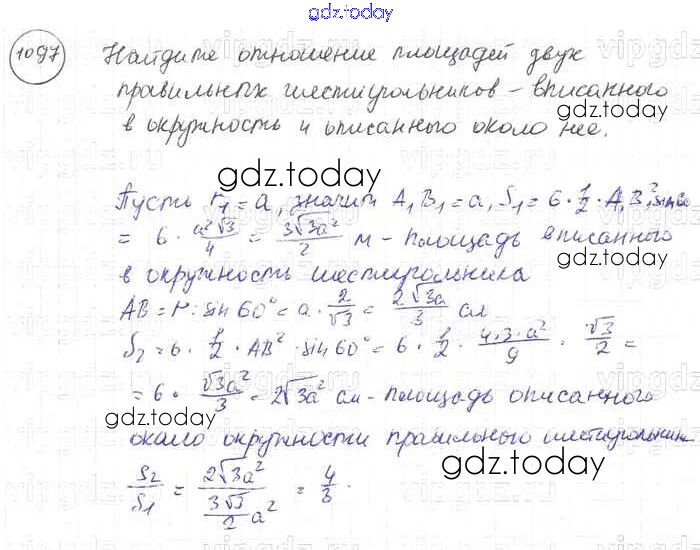 gdz.today
1097 Найдите отношение площадей двух
правильных шестиугольников – вписанного
gdz.today
в окружность и описанного около неё.
gdz.today
Пусть r₁ = a, значит A₁B₁ = a, S₁ = 6 · 1/2 · A₁B₁² sin 60
= 6 · a²√3/4 = 3√3a²/2 м – площадь вписанного
gdz.today
в окружность шестиугольника
AB = r : sin 60° = a · 2/√3 = 2√3a/3 см
S₂ = 6 · 1/2 · AB² · sin 60° = 6 · 1/2 · 4·3·a²/9 · √3/2 =
= 6 · √3a²/3 = 2√3a² см – площадь описанного
gdz.today
около окружности правильного шестиугольник
gdz.today
S₂/S₁ = 2√3a² / (3√3/2 a²) = 4/3.
gdz.today